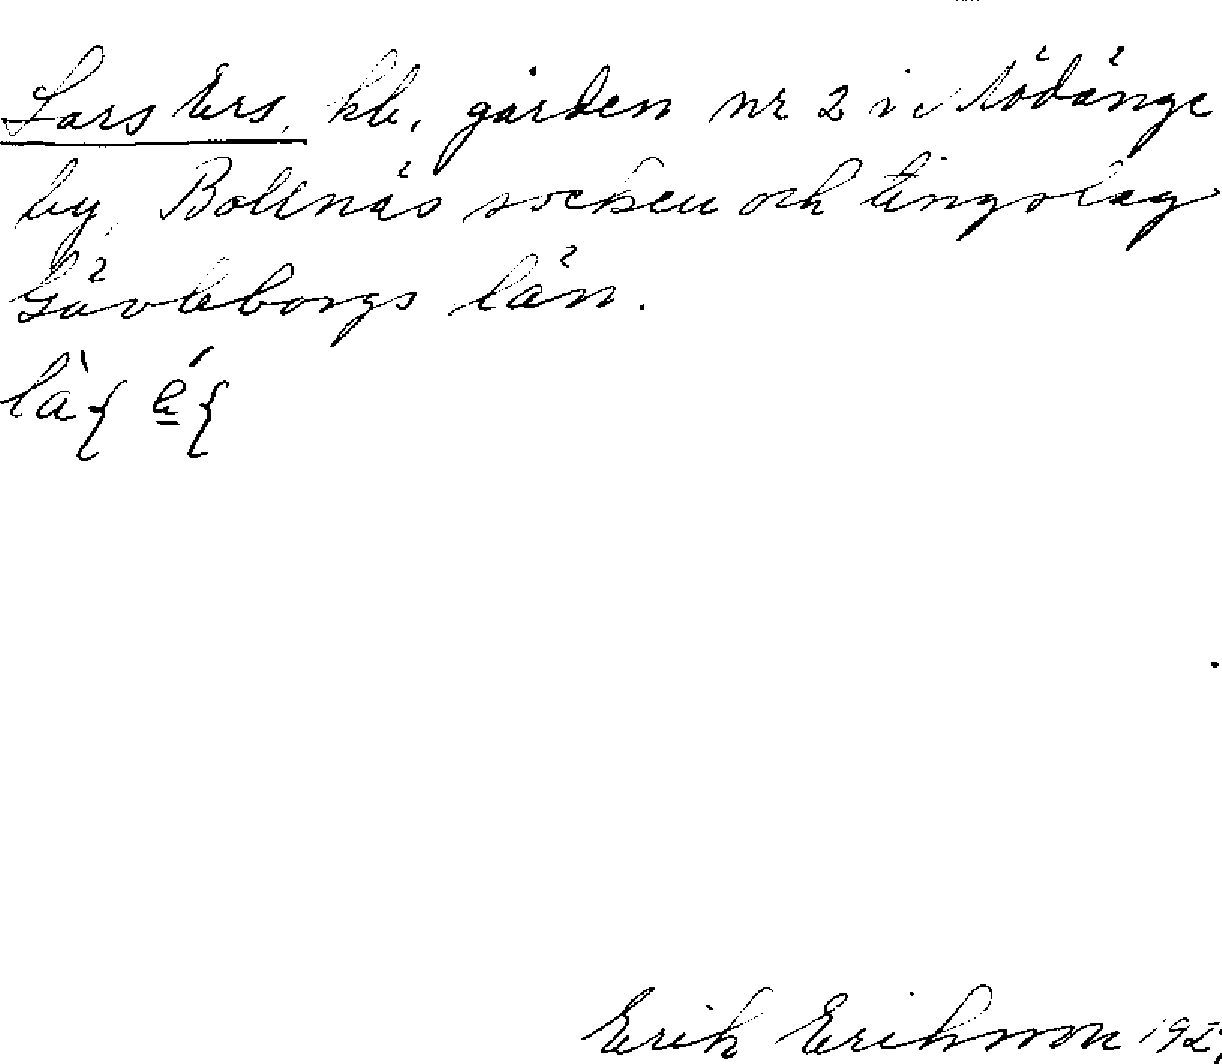 Lars Ers, kb, gården nr 2 i Nödänge
by, Bollnäs socken och tingslag
Gävleborgs län.
Erik Erikson